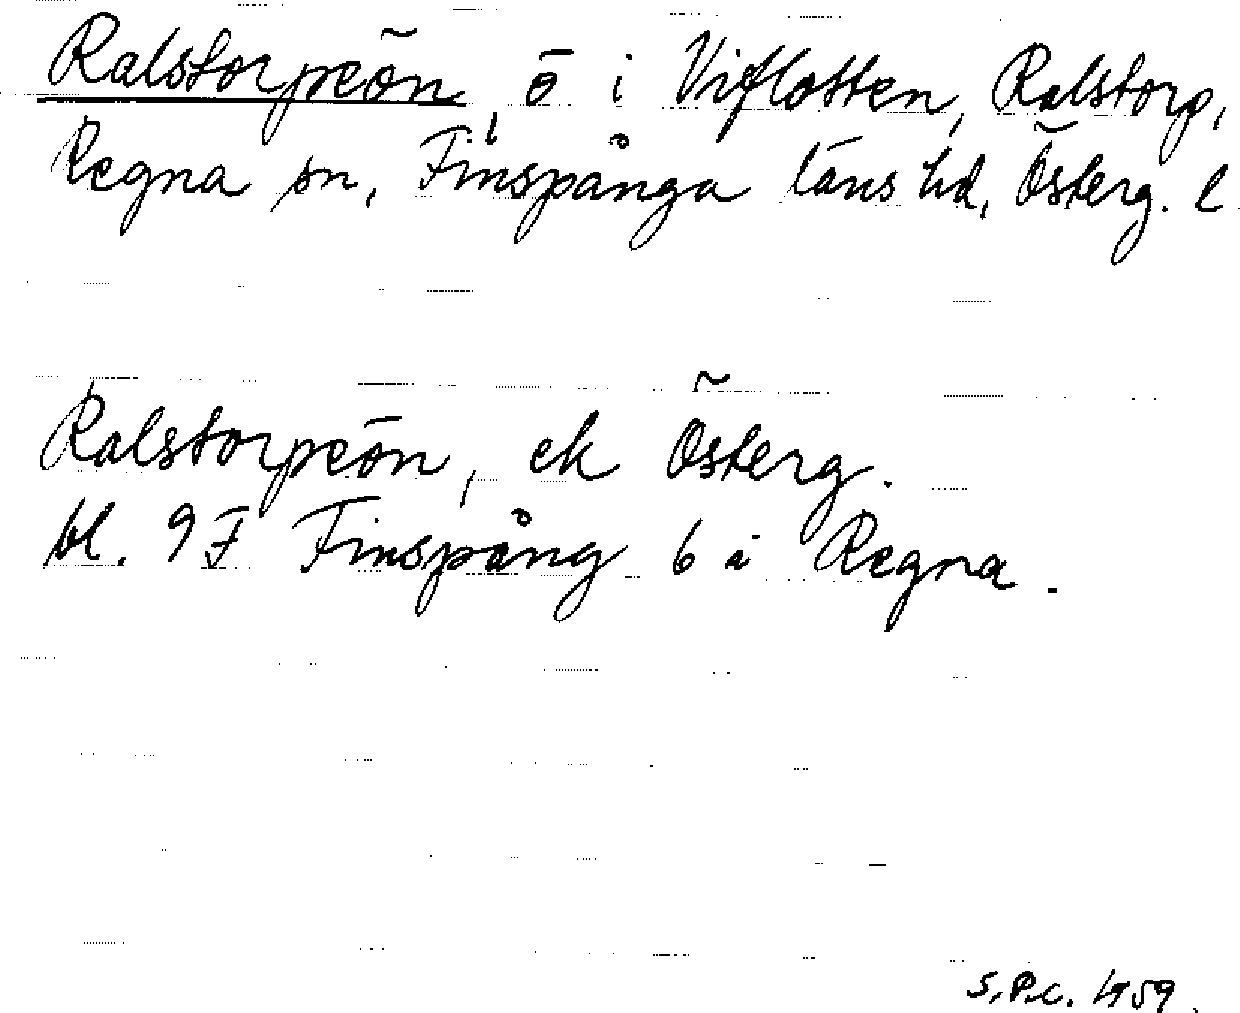 Ralstorpeön, ö i Viflotten, Ralstorp,
Regna sn, Finspånga läns hd, Österg. l
Ralstorpeön, ek Österg.
bl. 9F Finspång 6 i Regna.
S.P.C. 1959.